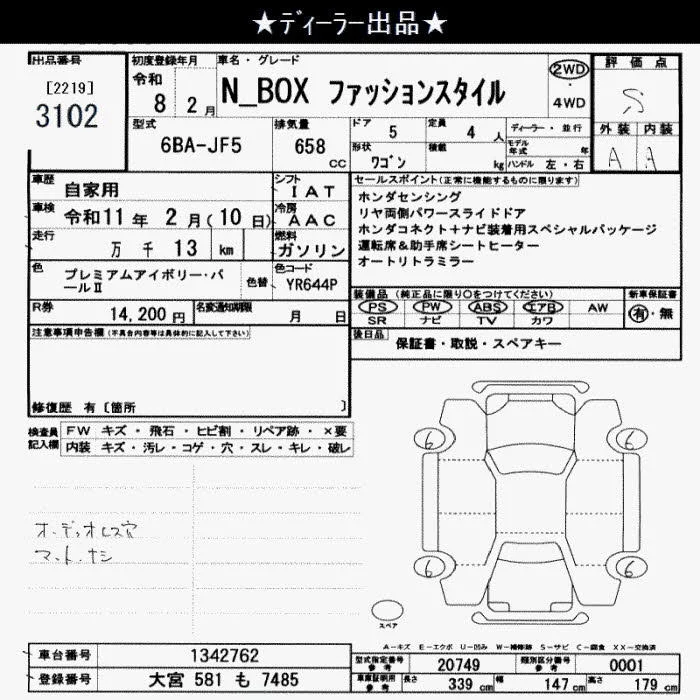 ★ディーラー出品★
出品番号
[2219]
3102
初度登録年月
令和
8 2 月
車名・グレード
N_BOX ファッションスタイル
2WD
・
4WD
評価点
S
外装 内装
A A
型式
6BA-JF5
排気量
658
cc
ドア
5
定員
4 人
形状
ワゴン
積載
kg
ディーラー・並行
モデル年式 年
ハンドル 左・右
車歴 自家用
シフト IAT
車検 令和11年 2月(10日)
冷房 AAC
走行 万 千 13 km
燃料 ガソリン
色 プレミアムアイボリー・パールⅡ
色替
色コード YR644P
R券 14,200 円
名変通知期限 月 日
セールスポイント(正常に機能するものに限ります)
ホンダセンシング
リヤ両側パワースライドドア
ホンダコネクト+ナビ装着用スペシャルパッケージ
運転席&助手席シートヒーター
オートリトラミラー
装備品 (純正品に限り○をつけてください)
PS PW ABS エアB AW
SR ナビ TV カワ
新車保証書
有・無
後日品 保証書・取説・スペアキー
注意事項申告欄 (不具合内容等は具体的に記入して下さい)
修復歴 有〔箇所 〕
検査員記入欄
FW キズ・飛石・ヒビ割・リペア跡・×要
内装 キズ・汚レ・コゲ・穴・スレ・キレ・破レ
オーディオレス穴
マット ナシ
6 6
6 6
スペア
A-キズ E-エクボ U-凹み W-補修跡 S-サビ C-腐食 XX-交換済
車台番号 1342762
登録番号 大宮 581 も 7485
型式指定番号 参考 20749
類別区分番号 参考 0001
車庫証明用 参考 長さ 339 cm 幅 147 cm 高さ 179 cm